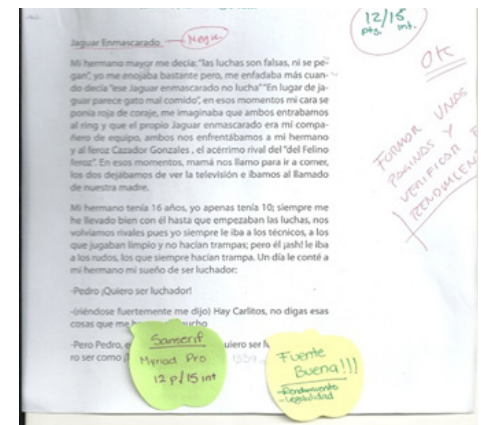 12/15
pts. int.
Jaguar Enmascarado
Negra
OK
Mi hermano mayor me decía: "las luchas son falsas, ni se pe-
gan", yo me enojaba bastante pero, me enfadaba más cuan-
do decía "ese Jaguar enmascarado no lucha" "En lugar de ja-
guar parece gato mal comido", en esos momentos mi cara se
ponía roja de coraje, me imaginaba que ambos entrabamos
al ring y que el propio Jaguar enmascarado era mi compa-
ñero de equipo, ambos nos enfrentábamos a mi hermano
y al feroz Cazador Gonzales , el acérrimo rival del "del Felino
feroz". En esos momentos, mamá nos llamo para ir a comer,
los dos dejábamos de ver la televisión e íbamos al llamado
de nuestra madre.
FORMAR UNAS
PAGINAS Y
VERIFICAR
Mi hermano tenía 16 años, yo apenas tenía 10; siempre me
he llevado bien con él hasta que empezaban las luchas, nos
volvíamos rivales pues yo siempre le iba a los técnicos, a los
que jugaban limpio y no hacían trampas; pero él ¡ash! le iba
a los rudos, los que siempre hacían trampa. Un día le conté a
mi hermano mi sueño de ser luchador:
-Pedro ¡Quiero ser luchador!
-(riéndose fuertemente me dijo) Hay Carlitos, no digas esas
cosas que me
-Pero Pedro,
ro ser como
Sanserif
Myriad Pro
12 p/15 int
Fuente
Buena!!!
-Rendimiento
-Legibilidad